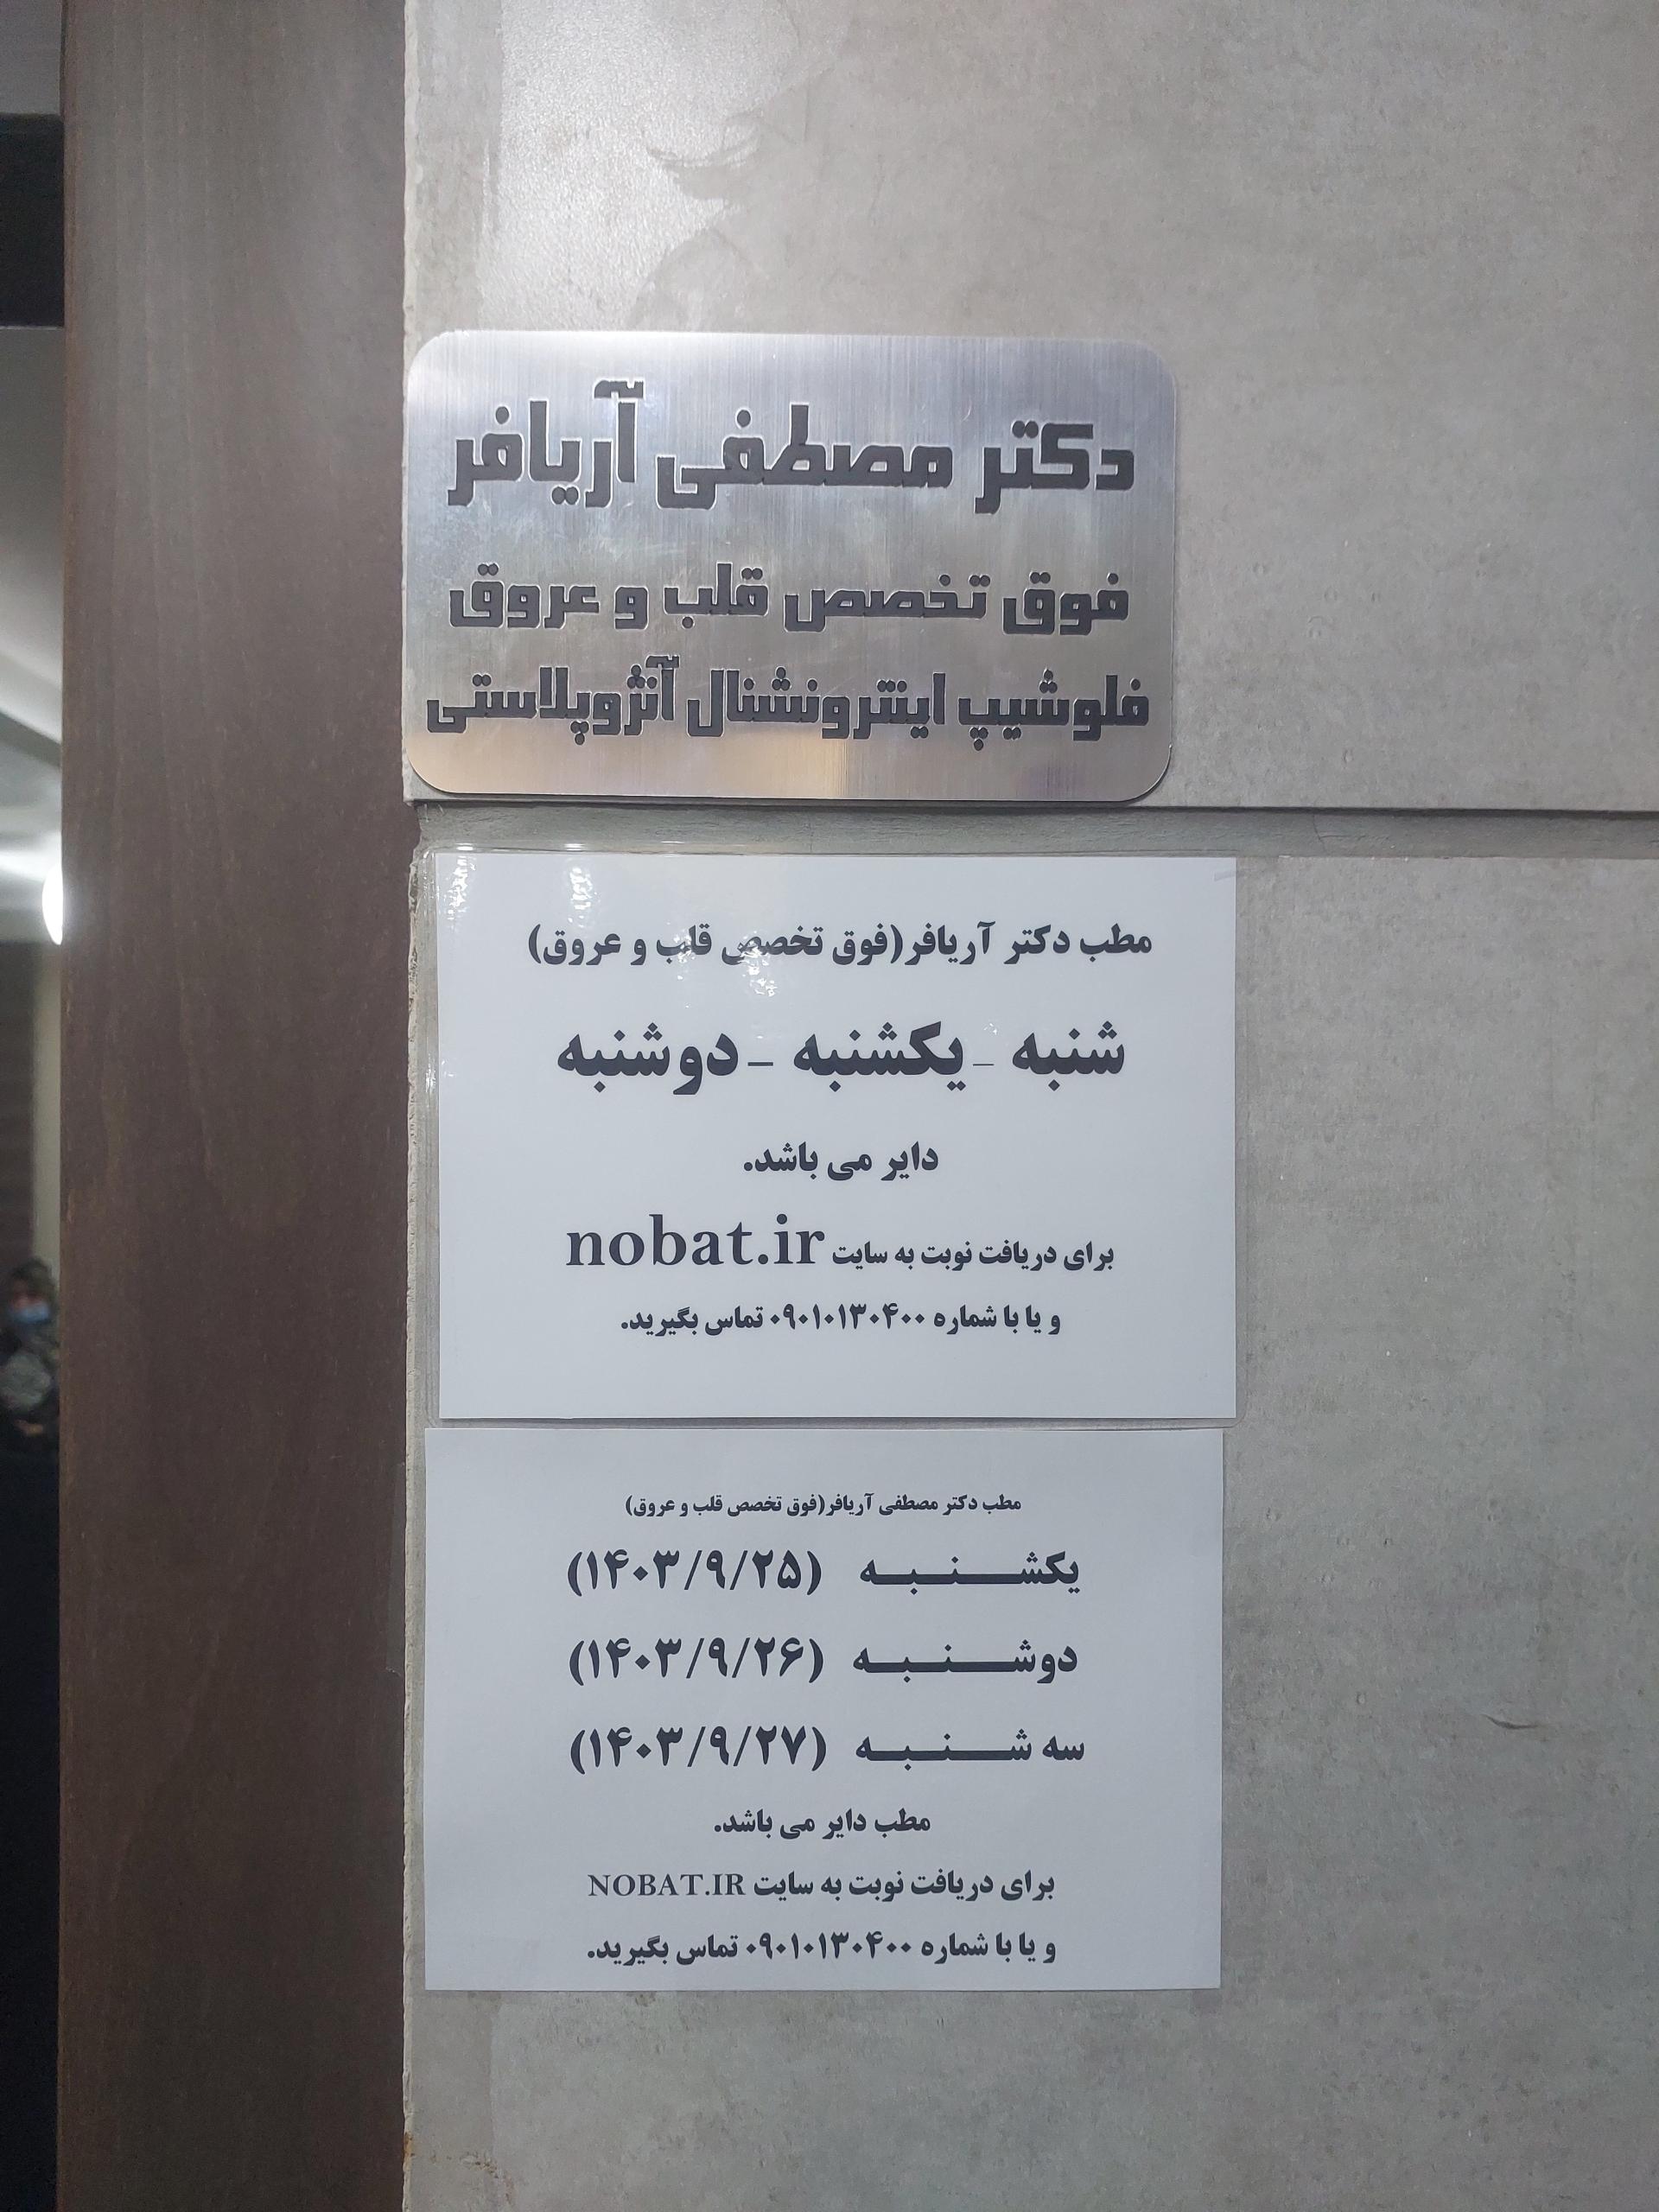 دکتر مصطفی آریافر
فوق تخصص قلب و عروق
فلوشیپ اینترونشنال آنژوپلاستی
مطب دکتر آریافر(فوق تخصص قلب و عروق)
شنبه - یکشنبه - دوشنبه
دایر می باشد.
برای دریافت نوبت به سایت nobat.ir
و یا با شماره ۰۹۰۱۰۱۳۰۴۰۰ تماس بگیرید.
مطب دکتر مصطفی آریافر(فوق تخصص قلب و عروق)
یکشـــــنـــبــه (۱۴۰۳/۹/۲۵)
دوشـــــنـــبــه (۱۴۰۳/۹/۲۶)
سه شـــــنـــبــه (۱۴۰۳/۹/۲۷)
مطب دایر می باشد.
برای دریافت نوبت به سایت NOBAT.IR
و یا با شماره ۰۹۰۱۰۱۳۰۴۰۰ تماس بگیرید.